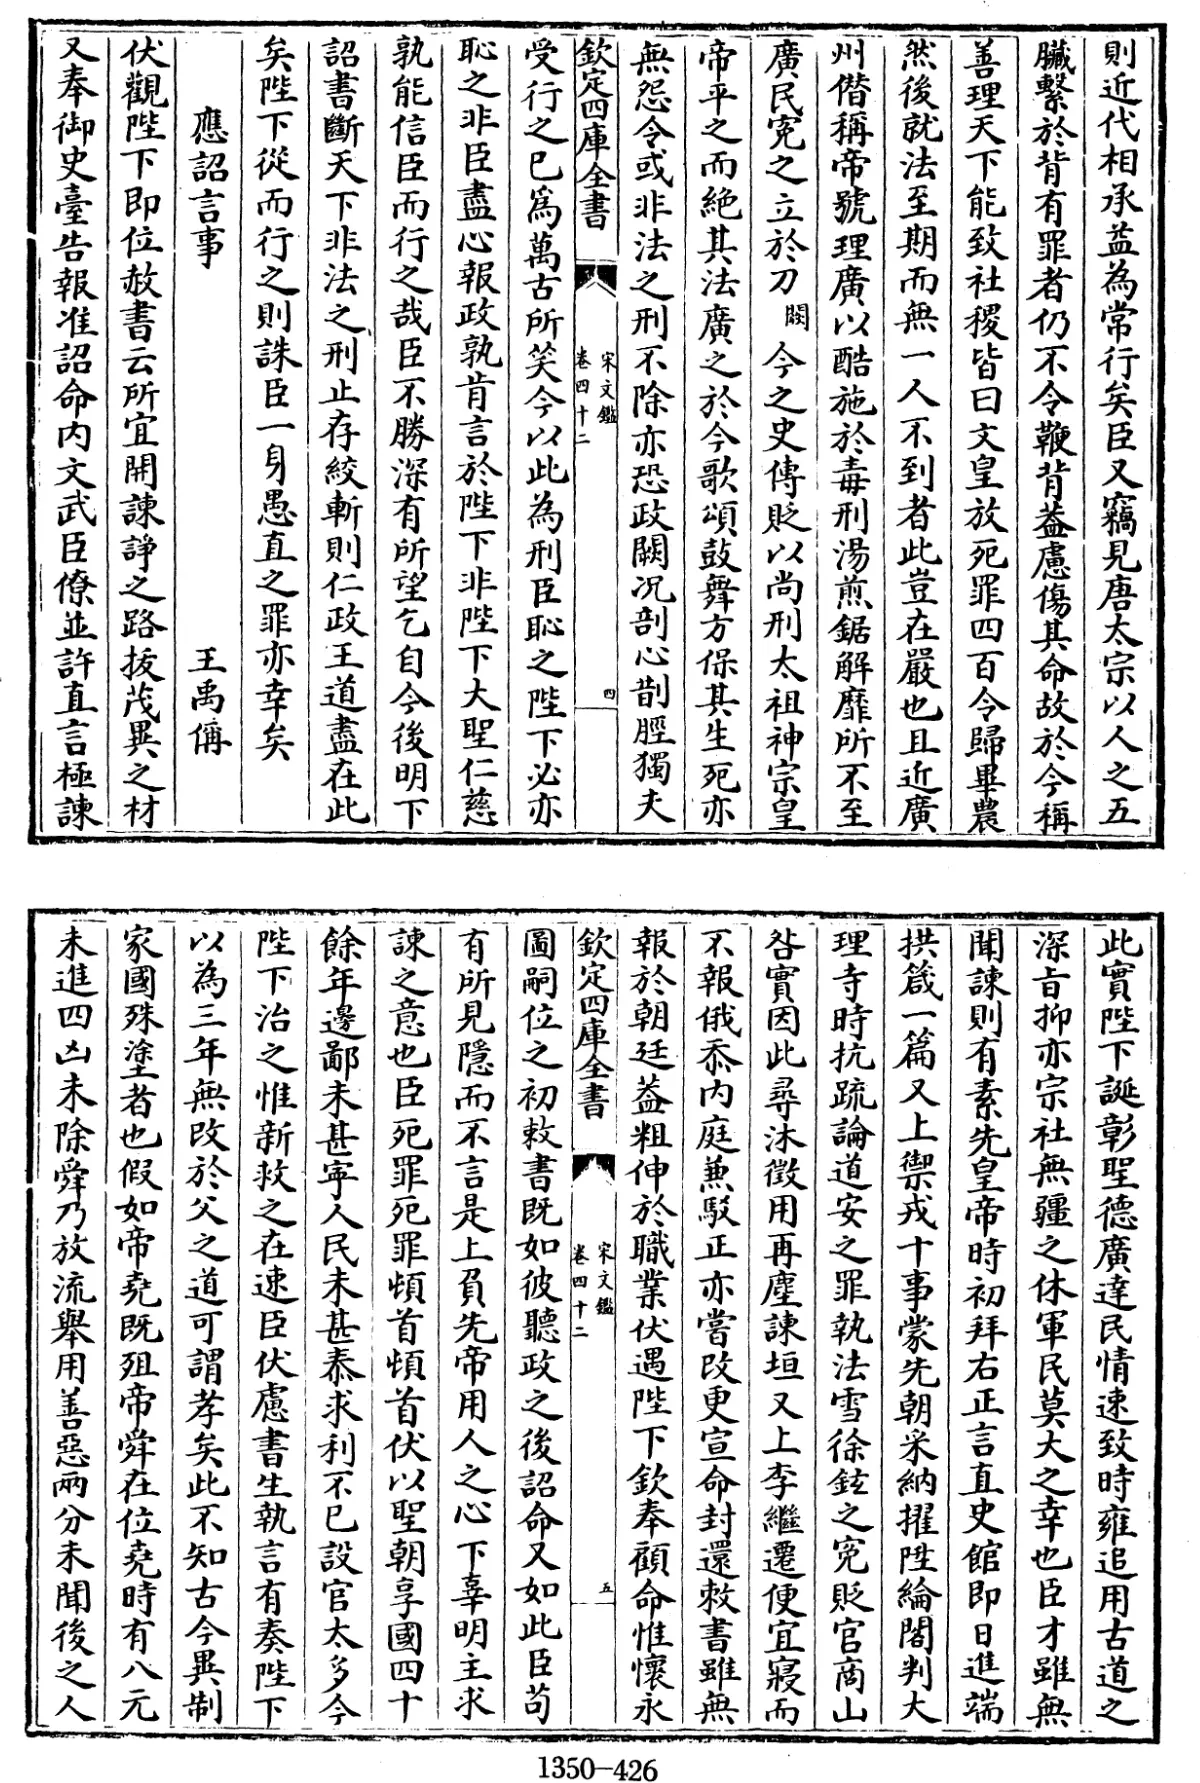 則近代相承益為常行矣臣又竊見唐太宗以人之五
臟繫於背有罪者仍不令鞭背葢慮傷其命故於今稱
善理天下能致社稷皆曰文皇放死罪四百令歸畢農
然後就法至期而無一人不到者此豈在嚴也且近廣
州僭稱帝號理廣以酷施於毒刑湯煎鋸解靡所不至
廣民寃之立於刀闕今之史傳貶以尚刑太祖神宗皇
帝平之而絶其法廣之於今歌頌鼓舞方保其生死亦
無怨令或非法之刑不除亦恐政闕况剖心㓨脛獨夫
欽定四庫全書
宋文鑑
卷四十二
四
受行之已為萬古所笑今以此為刑臣恥之陛下必亦
恥之非臣盡心報政孰肯言於陛下非陛下大聖仁慈
孰能信臣而行之哉臣不勝深有所望乞自今後明下
詔書斷天下非法之刑止存絞斬則仁政王道盡在此
矣陛下從而行之則誅臣一身愚直之罪亦幸矣
應詔言事 王禹偁
伏觀陛下即位赦書云所宜開諫諍之路拔茂異之材
又奉御史臺告報准詔命内文武臣僚並許直言極諫
此實陛下誕彰聖德廣達民情速致時雍追用古道之
深㫖抑亦宗社無疆之休軍民莫大之幸也臣才雖無
聞諫則有素先皇帝時初拜右正言直史館即日進端
拱箴一篇又上禦戎十事蒙先朝采納擢陞綸閣判大
理寺時抗疏論道安之罪執法雪徐鉉之寃貶官商山
咎實因此尋沐徵用再塵諫垣又上李繼遷便宜寢而
不報俄忝内庭兼駁正亦嘗改更宣命封還敕書雖無
報於朝廷葢粗伸於職業伏遇陛下欽奉顧命惟懷永
欽定四庫全書
宋文鑑
卷四十二
五
圖嗣位之初敕書既如彼聽政之後詔命又如此臣苟
有所見隱而不言是上負先帝用人之心下辜明主求
諫之意也臣死罪死罪頓首頓首伏以聖朝享國四十
餘年邊鄙未甚寧人民未甚泰求利不已設官太多今
陛下治之惟新救之在速臣伏慮書生執言有奏陛下
以為三年無改於父之道可謂孝矣此不知古今異制
家國殊塗者也假如帝堯既殂帝舜在位堯時有八元
未進四凶未除舜乃放流舉用善惡兩分未聞後之人
1350-426